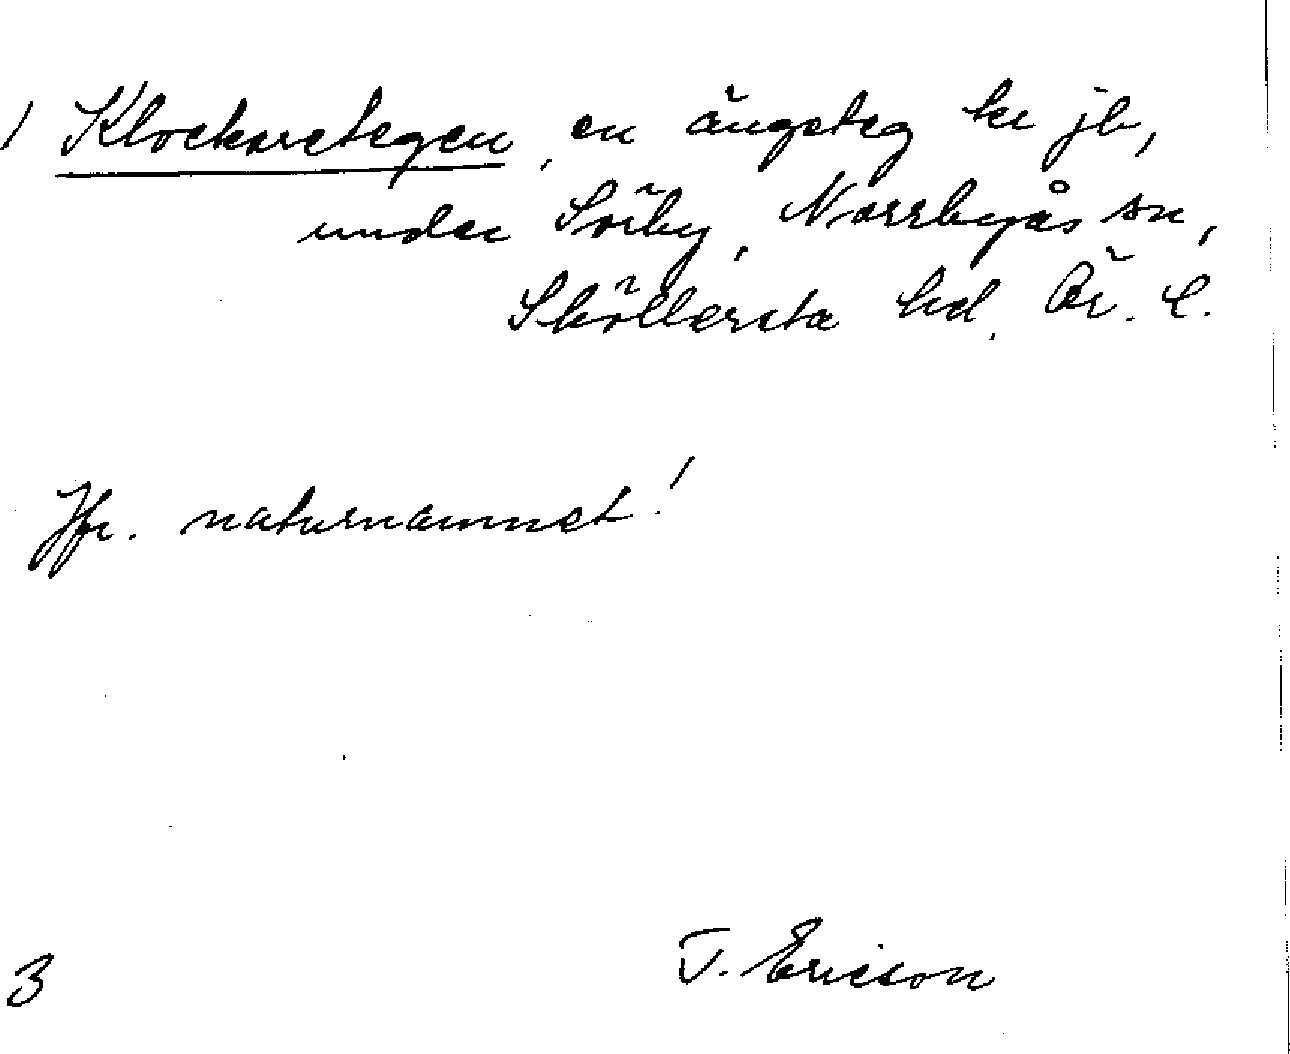 1 Klockaretegen, en ängsteg ke jb,
under Söiby, Norrbyås sn,
Sköllersta hd, Ör. l.
Jfr. naturnamnet!
T. Ericson
3